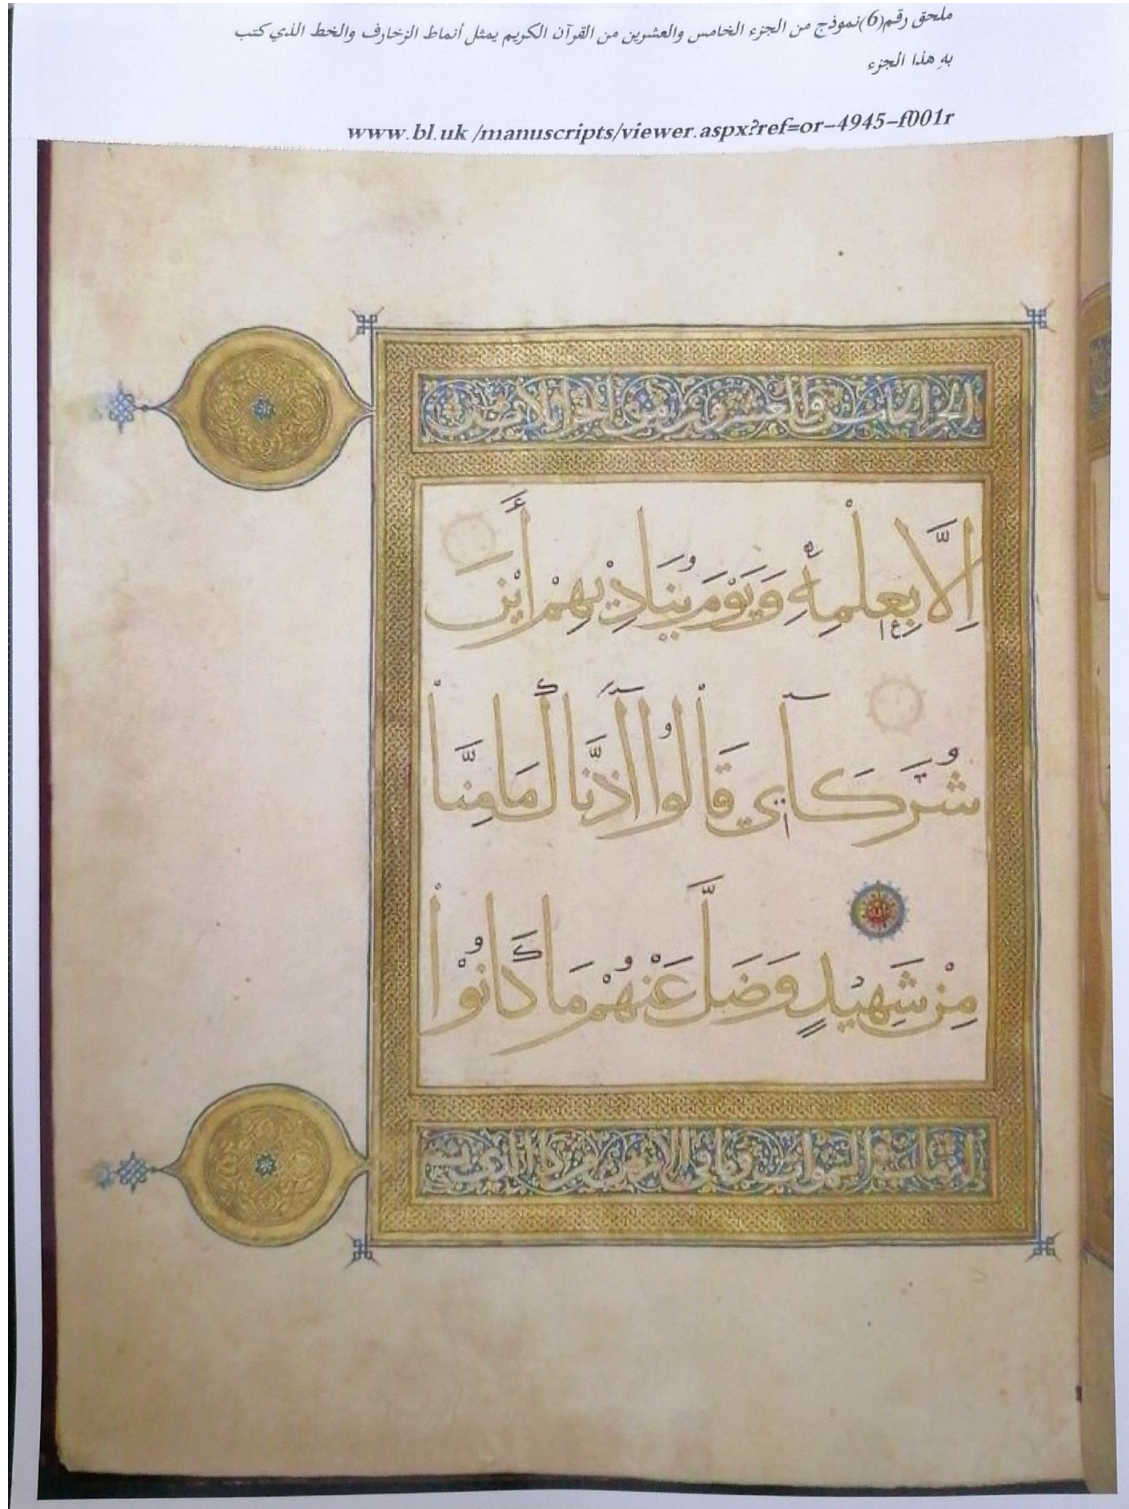 ملحق رقم(6)نموذج من الجزء الخامس والعشرين من القرآن الكريم يمثل أنماط الزخارف والخط الذي كتب
بهِ هذا الجزء
www.bl.uk /manuscripts/viewer.aspx?ref=or-4945-f001r
الجز الخامس والعشرون من
اِلَّا بِعِلْمِهِ وَيَوْمَ يُنَادِيْهِمْ أَيْنَ
شُرَكَآيِ قَالُوا آذَنَّاكَ مَا مِنَّا
مِنْ شَهِيْدٍ وَضَلَّ عَنْهُمْ مَا كَانُوْا
السموات الارض